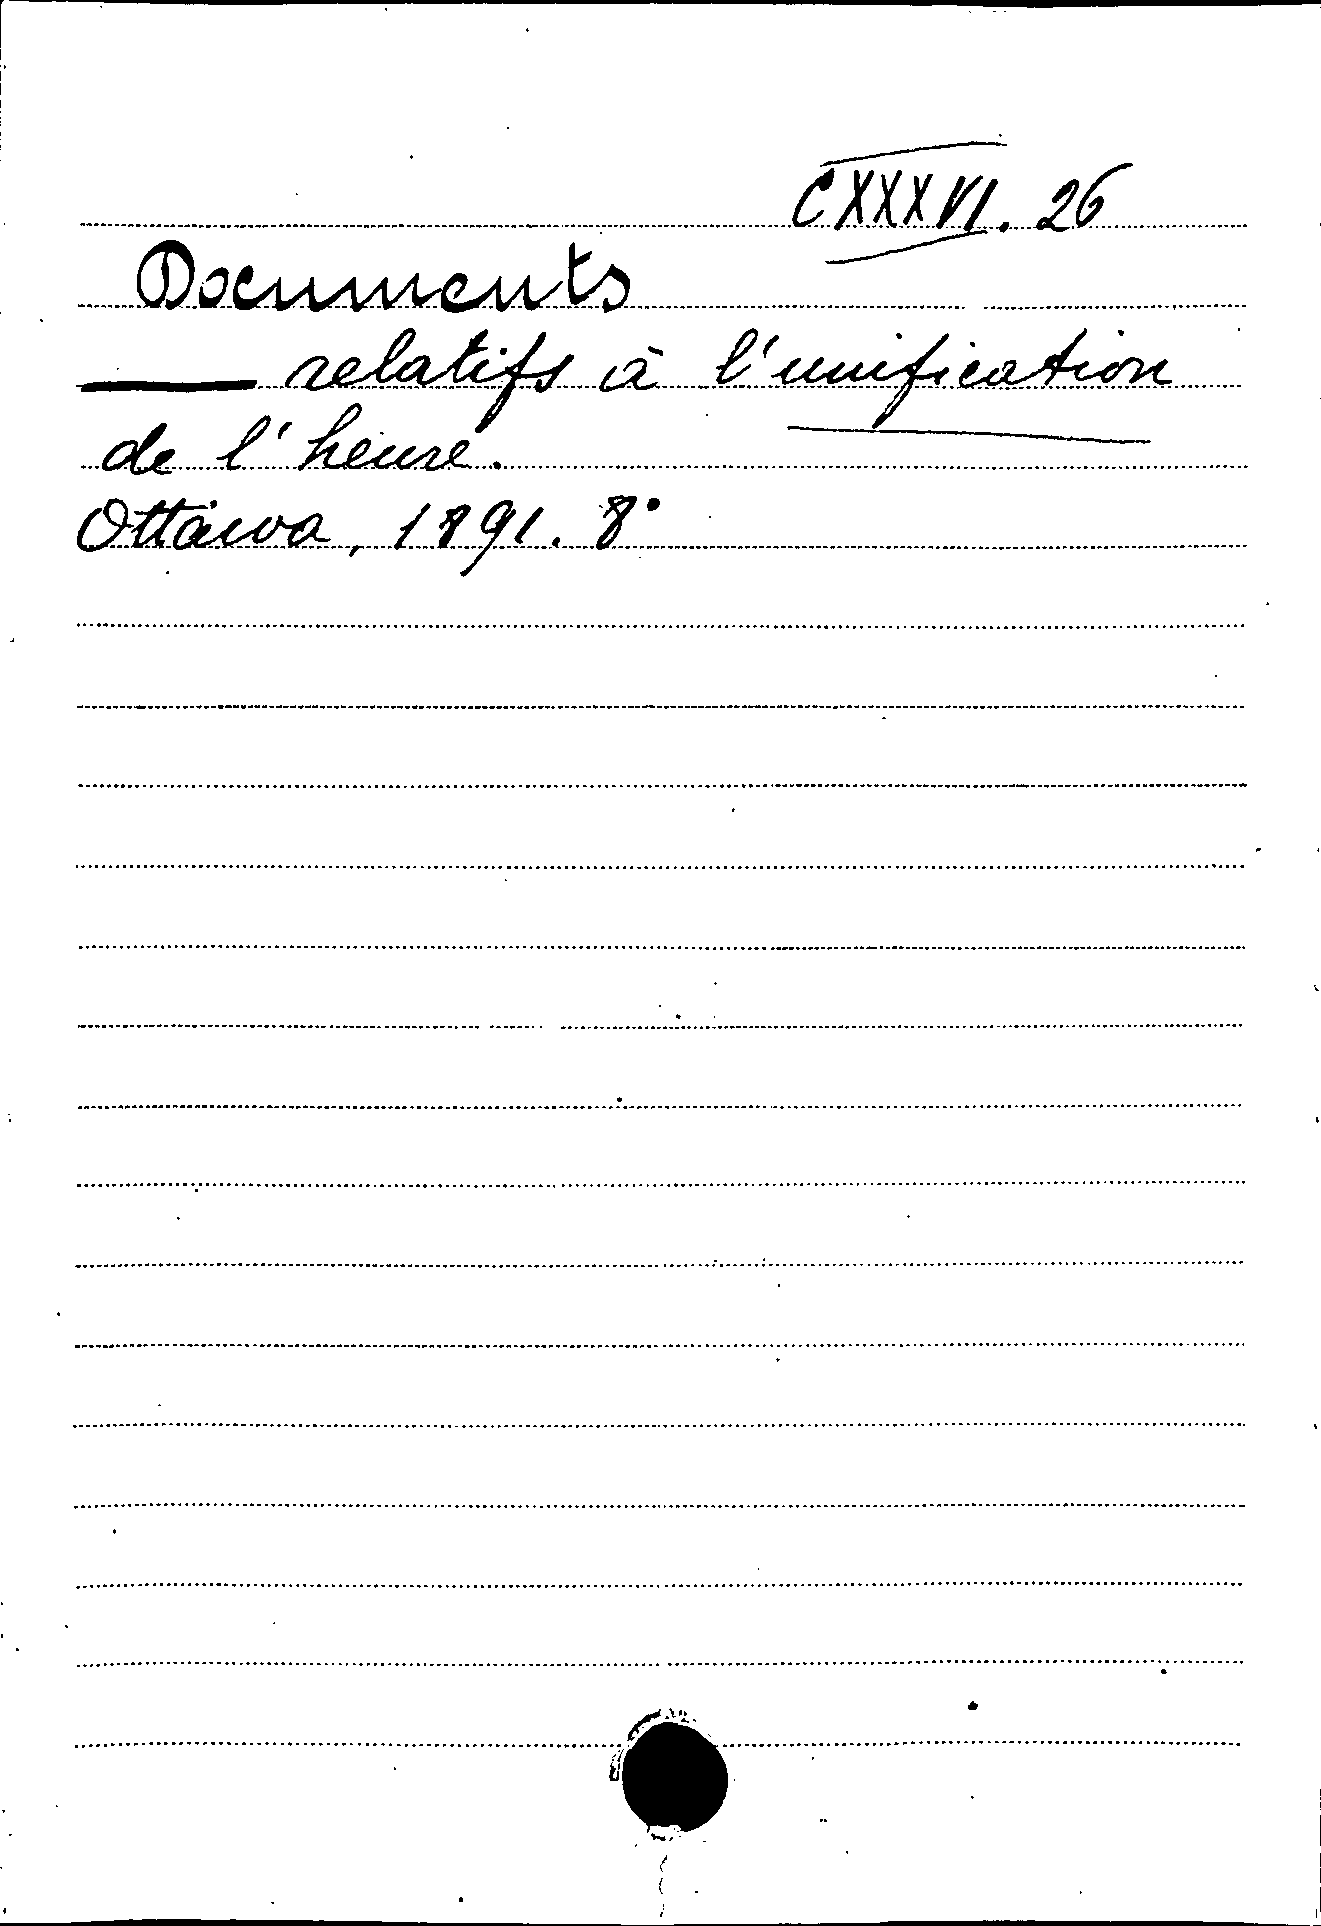 CXXXVI. 26
Documents
——— relatifs à l'unification
de l'heure.
Ottawa, 1891. 8°